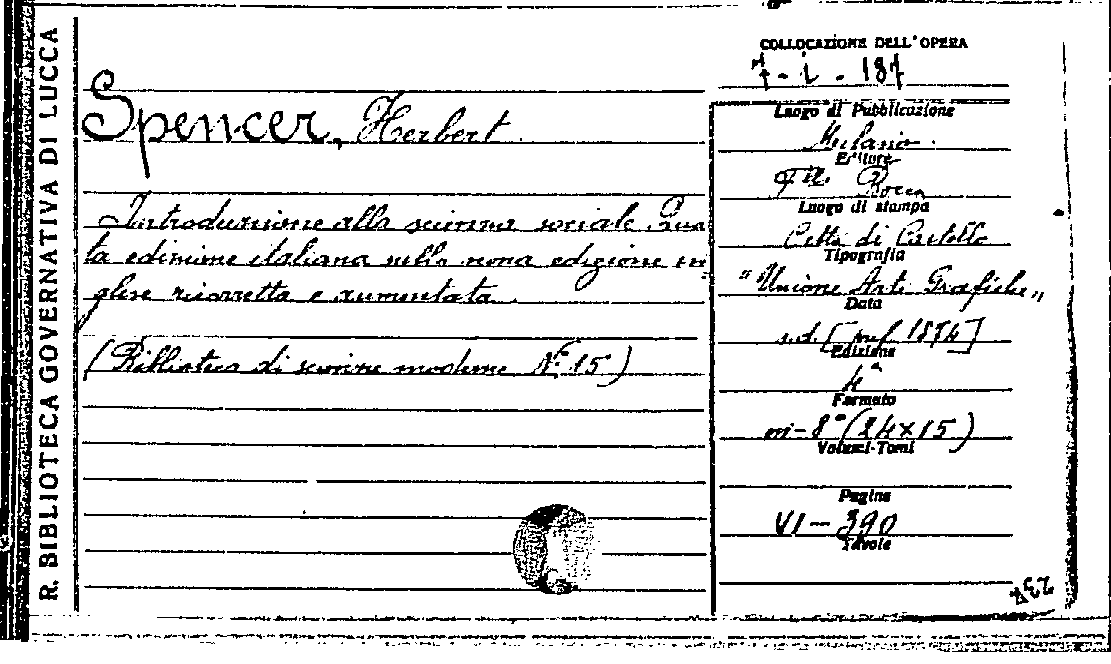 R. BIBLIOTECA GOVERNATIVA DI LUCCA
Spencer, Herbert.
Introduzione alla scienza sociale. Quar
ta edizione italiana sulla nona edizione in
glese ricorretta e aumentata.
(Biblioteca di scienze moderne N.° 15)
COLLOCAZIONE DELL'OPERA
7 - i - 187
Luogo di Pubblicazione
Milano.
Editore
F.lli Bocca
Luogo di stampa
Città di Castello
Tipografia
"Unione Arti Grafiche"
Data
s.d. [pref. 1874]
Edizione
4ª
Formato
in-8° (24x15)
Volumi-Tomi
Pagine
VI - 390
Tavole